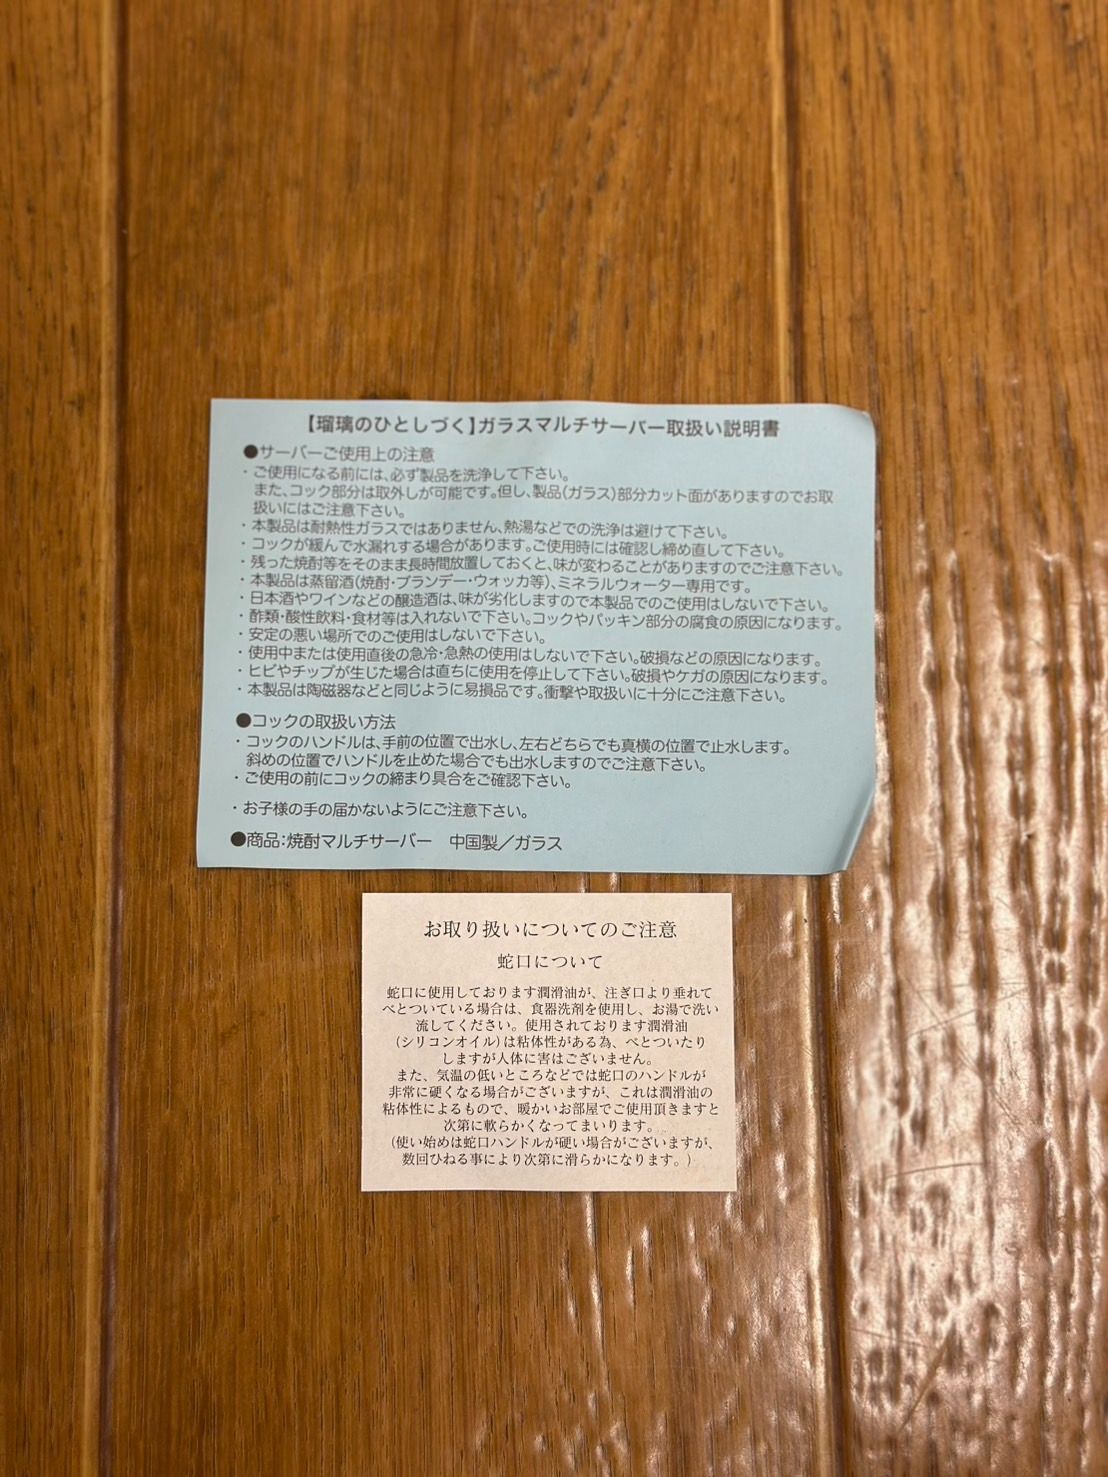 【瑠璃のひとしづく】ガラスマルチサーバー取扱い説明書
●サーバーご使用上の注意
・ご使用になる前には、必ず製品を洗浄して下さい。
また、コック部分は取外しが可能です。但し、製品(ガラス)部分カット面がありますのでお取
扱いにはご注意下さい。
・本製品は耐熱性ガラスではありません、熱湯などでの洗浄は避けて下さい。
・コックが緩んで水漏れする場合があります。ご使用時には確認し締め直して下さい。
・残った焼酎等をそのまま長時間放置しておくと、味が変わることがありますのでご注意下さい。
・本製品は蒸留酒(焼酎・ブランデー・ウォッカ等)、ミネラルウォーター専用です。
・日本酒やワインなどの醸造酒は、味が劣化しますので本製品でのご使用はしないで下さい。
・酢類・酸性飲料・食材等は入れないで下さい。コックやパッキン部分の腐食の原因になります。
・安定の悪い場所でのご使用はしないで下さい。
・使用中または使用直後の急冷・急熱の使用はしないで下さい。破損などの原因になります。
・ヒビやチップが生じた場合は直ちに使用を停止して下さい。破損やケガの原因になります。
・本製品は陶磁器などと同じように易損品です。衝撃や取扱いに十分にご注意下さい。
●コックの取扱い方法
・コックのハンドルは、手前の位置で出水し、左右どちらでも真横の位置で止水します。
斜めの位置でハンドルを止めた場合でも出水しますのでご注意下さい。
・ご使用の前にコックの締まり具合をご確認下さい。
・お子様の手の届かないようにご注意下さい。
●商品:焼酎マルチサーバー 中国製/ガラス
お取り扱いについてのご注意
蛇口について
蛇口に使用しております潤滑油が、注ぎ口より垂れて
べとついている場合は、食器洗剤を使用し、お湯で洗い
流してください。使用されております潤滑油
(シリコンオイル)は粘体性がある為、べとついたり
しますが人体に害はございません。
また、気温の低いところなどでは蛇口のハンドルが
非常に硬くなる場合がございますが、これは潤滑油の
粘体性によるもので、暖かいお部屋でご使用頂きますと
次第に軟らかくなってまいります。
(使い始めは蛇口ハンドルが硬い場合がございますが、
数回ひねる事により次第に滑らかになります。)